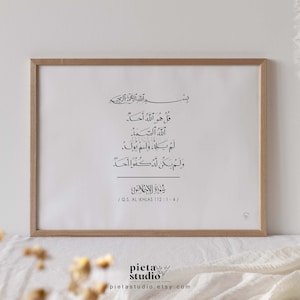 بِسْمِ اللَّهِ الرَّحْمَٰنِ الرَّحِيمِ
قُلْ هُوَ اللَّهُ أَحَدٌ
اللَّهُ الصَّمَدُ
لَمْ يَلِدْ وَلَمْ يُولَدْ
وَلَمْ يَكُن لَّهُ كُفُوًا أَحَدٌ
سُورَةُ الْإِخْلَاصِ
( Q.S. AL IKHLAS 112 : 1 - 4 )
pieta
studio
pietastudio.etsy.com